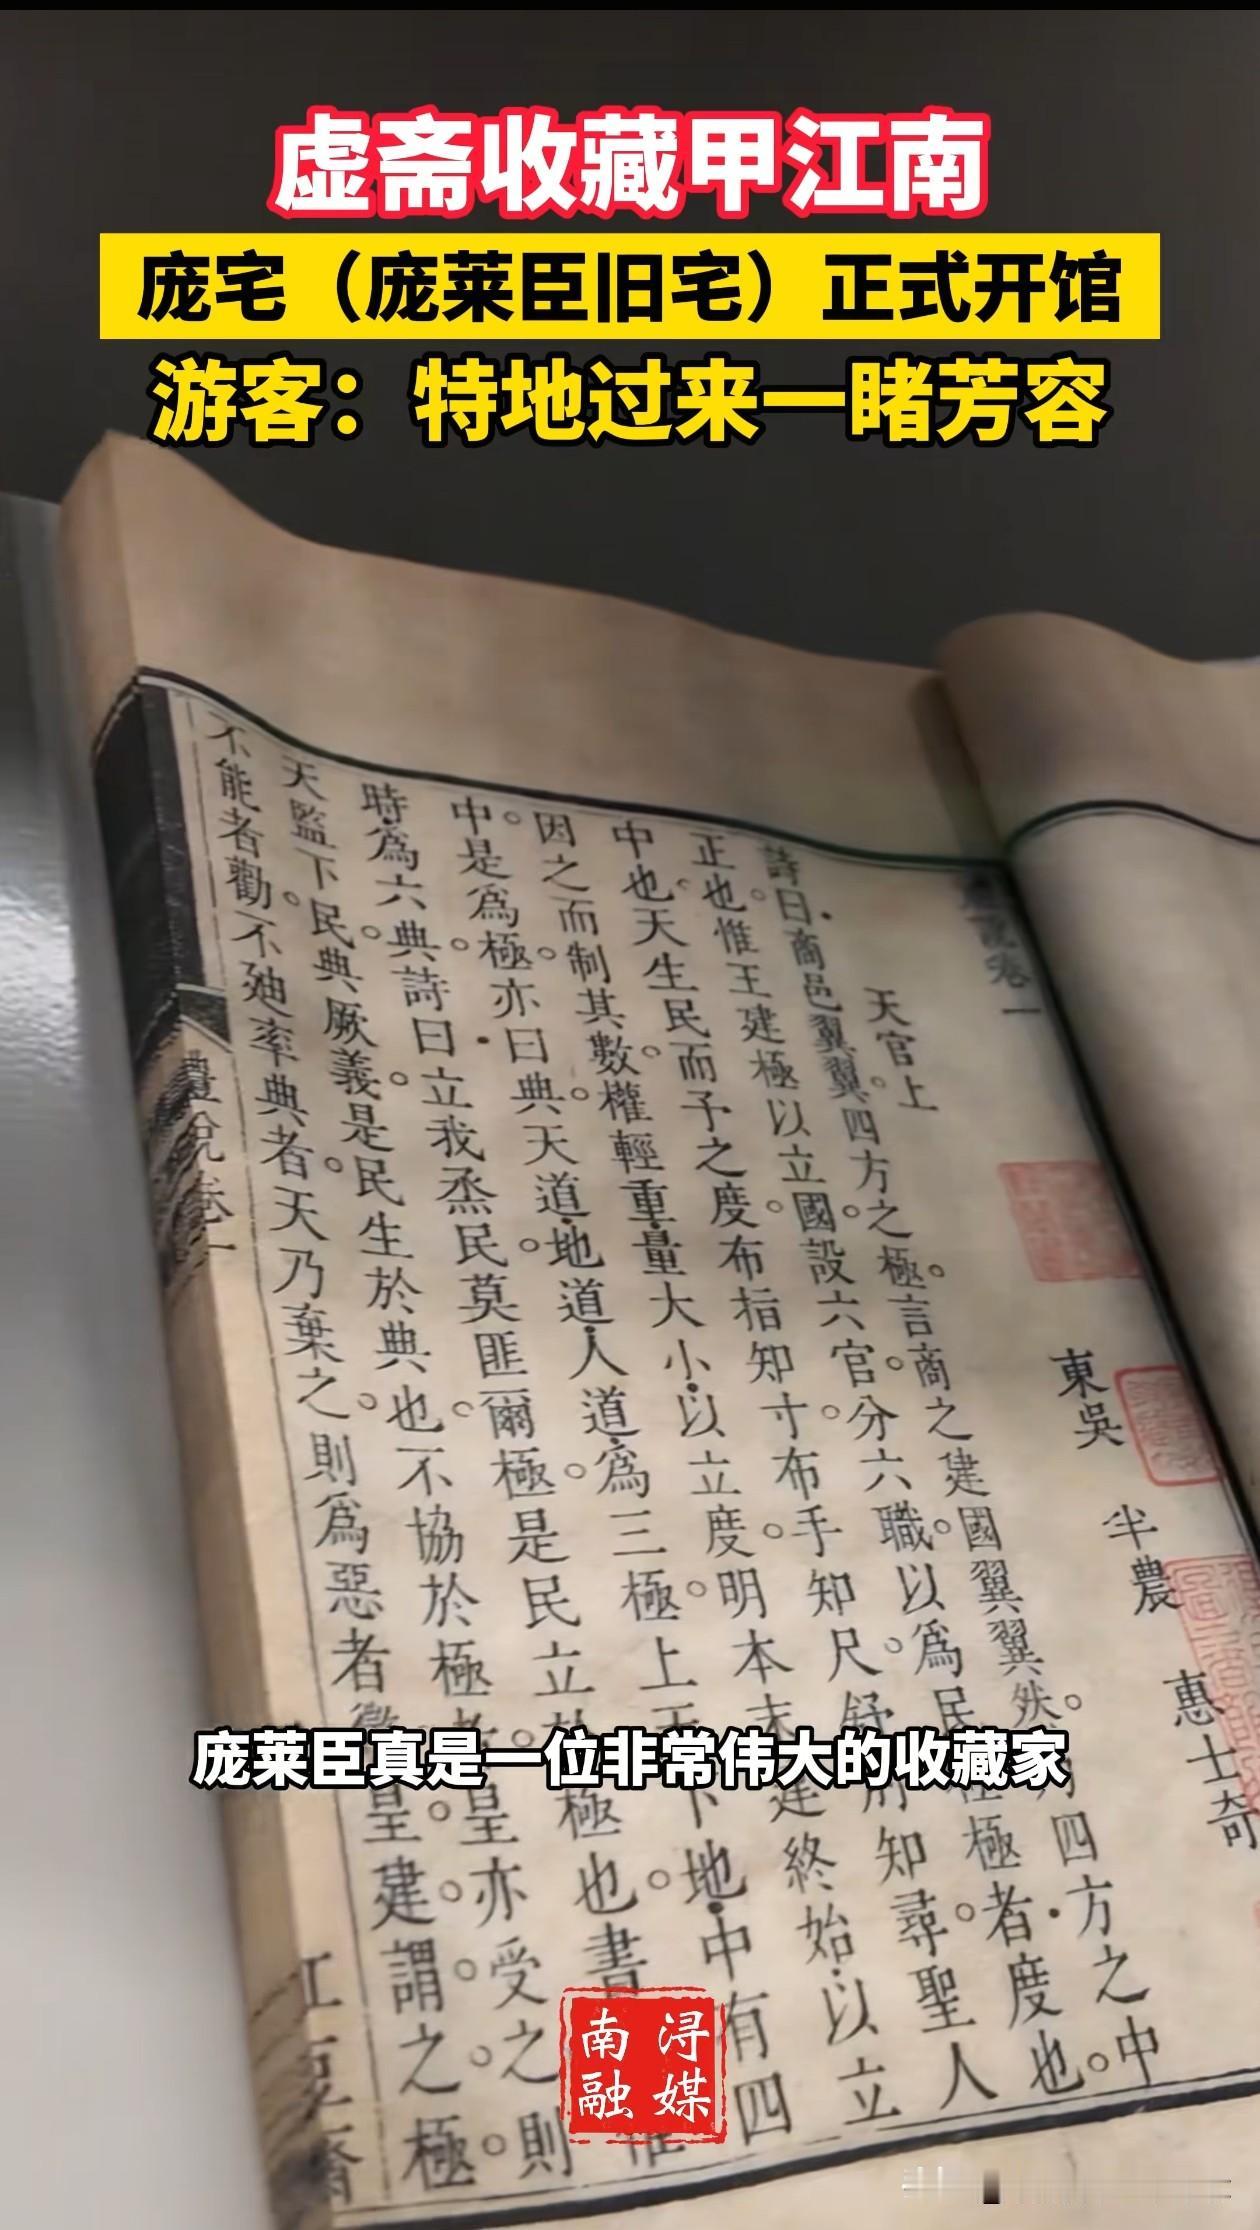 虚斋收藏甲江南
庞宅（庞莱臣旧宅）正式开馆
游客：特地过来一睹芳容
說卷一
東吳 半農 惠士奇
天官上
詩曰·商邑翼翼。四方之極。言商之建國翼翼然。四方之中
正也。惟王建極以立國。設六官。分六職。以爲民極極者·度也。
中也。天生民而予之度。布指知寸。布手知尺。舒知尋。聖人
因之而制其數。權輕重·量大小·以立度。明本末達終始·以立
中。是爲極。亦曰典。天道·地道·人道·爲三極。上天下地·中有四
時·爲六典。詩曰·立我烝民。莫匪爾極。是民立於極也。書惟
天監下民。典厥義。是民生於典也。不協於極者。皇亦受之。則
不能者勸。不迪率典者。天乃棄之。則爲惡者懲皇建。謂之極。
禮說卷一
紅豆齋
庞莱臣真是一位非常伟大的收藏家
南浔
融媒